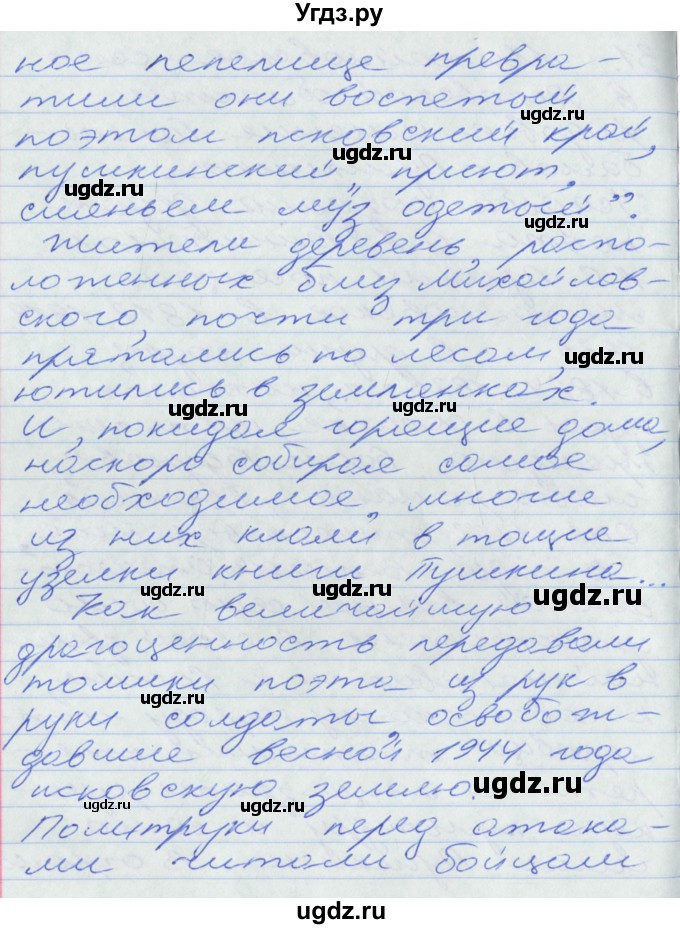 Угдз.ру
ное пепелище превра-
тили они воспетый
поэтом псковский край,
пушкинский „приют,
сияньем муз одетый”.
Жители деревень, распо-
ложенных близ Михайлов-
ского, почти три года
прятались по лесам,
ютились в землянках.
И, покидая горящие дома,
наскоро собирая самое
необходимое, многие
из них клали в тощие
узелки книги Пушкина...
Как величайшую
драгоценность передавали
томики поэта из рук в
руки солдаты, освобож-
давшие весной 1944 года
псковскую землю.
Политруки перед атака-
ми читали бойцам
ugdz.ru
ugdz.ru
ugdz.ru
ugdz.ru
ugdz.ru
ugdz.ru
ugdz.ru
ugdz.ru
ugdz.ru
ugdz.ru
ugdz.ru
ugdz.ru
ugdz.ru
ugdz.ru
ugdz.ru
ugdz.ru
ugdz.ru
ugdz.ru